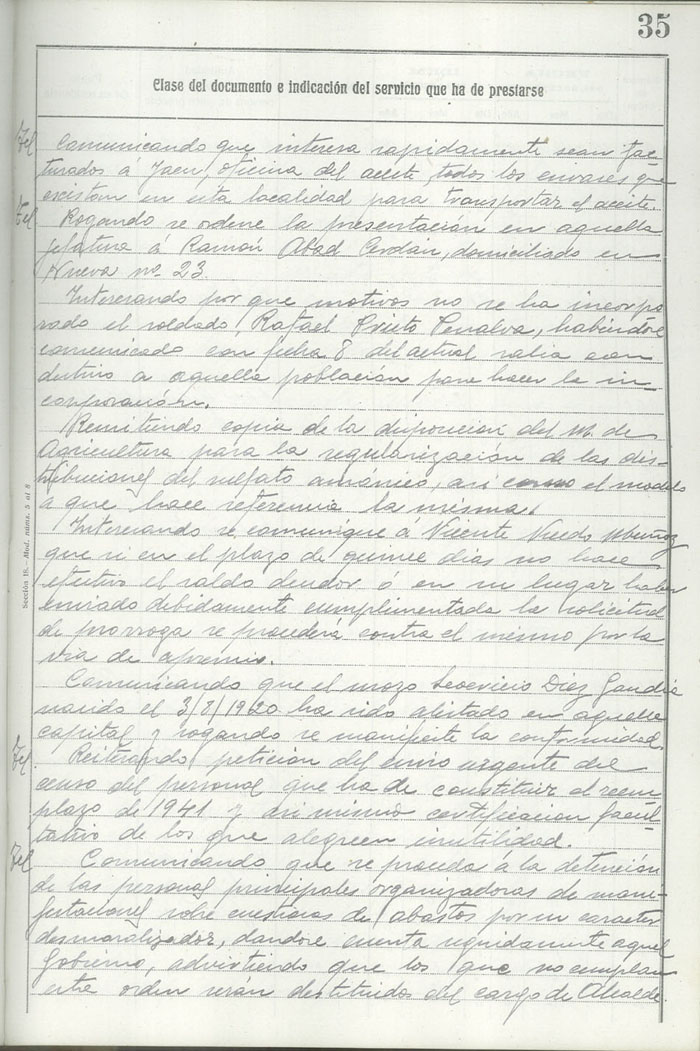 35
Clase del documento e indicación del servicio que ha de prestarse
Tel Comunicando que interesa rapidamente sean fac-
turados á Jaen, oficina del aceite, todos los envases que
existan en esta localidad para transportar el aceite.
Tel Rogando se ordene la presentación en aquella
jefatura á Ramón Abad Cerdán, domiciliado en
Nueva nº 23.
Interesando por que motivos no se ha incorpo
rado el soldado, Rafael Prieto Penalva, habiéndose
comunicado con fecha 8 del actual salia con
destino a aquella población para hacer la in-
corporación.
Remitiendo copia de la disposicion del M. de
Agricultura para la regularización de las dis-
tribucional del sulfato amónico, asi como el modelo
a que hace referencia la misma.
Interesando se comunique á Vicente Muñoz
que si en el plazo de quince dias no hace
efectivo el saldo deudor ó en su lugar haber
enviado debidamente cumplimentada la solicitud
de prorroga se procederá contra el mismo por la
via de apremio.
Comunicando que el mozo Díez Gandia
nacido el 3/8/1920 ha sido alistado en aquella
capital y rogando se manifieste la conformidad.
Tel Reiterando petición del envio urgente del
censo del personal que ha de constituir el reem
plazo de 1941 y asi mismo certificacion facul-
tativo de los que aleguen inutilidad.
Tel Comunicando que se proceda á la detención
de las personal principales organizadoras de mani-
festacional sobre cuestiones de abastos por su caracter
desmoralizador, dandose cuenta seguidamente aquel
Gobierno, advirtiendo que los que no cumplan
esta orden serán destituidos del cargo de Alcalde.
Sección 1ª.- Mod. núms. 5 al 8